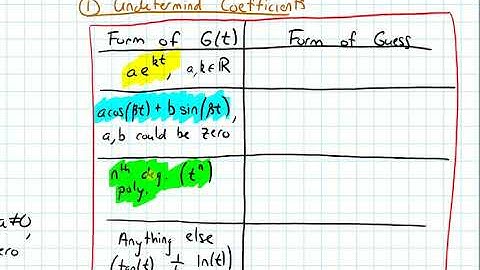 ① Undetermind Coefficients
Form of G(t)
Form of Guess
ae^{kt}, a,k∈ℝ
acos(βt) + b sin(βt),
a, b could be zero
n^{th} deg. (t^n)
poly.
a≠0,
Anything else
(tan(t) ln(t)